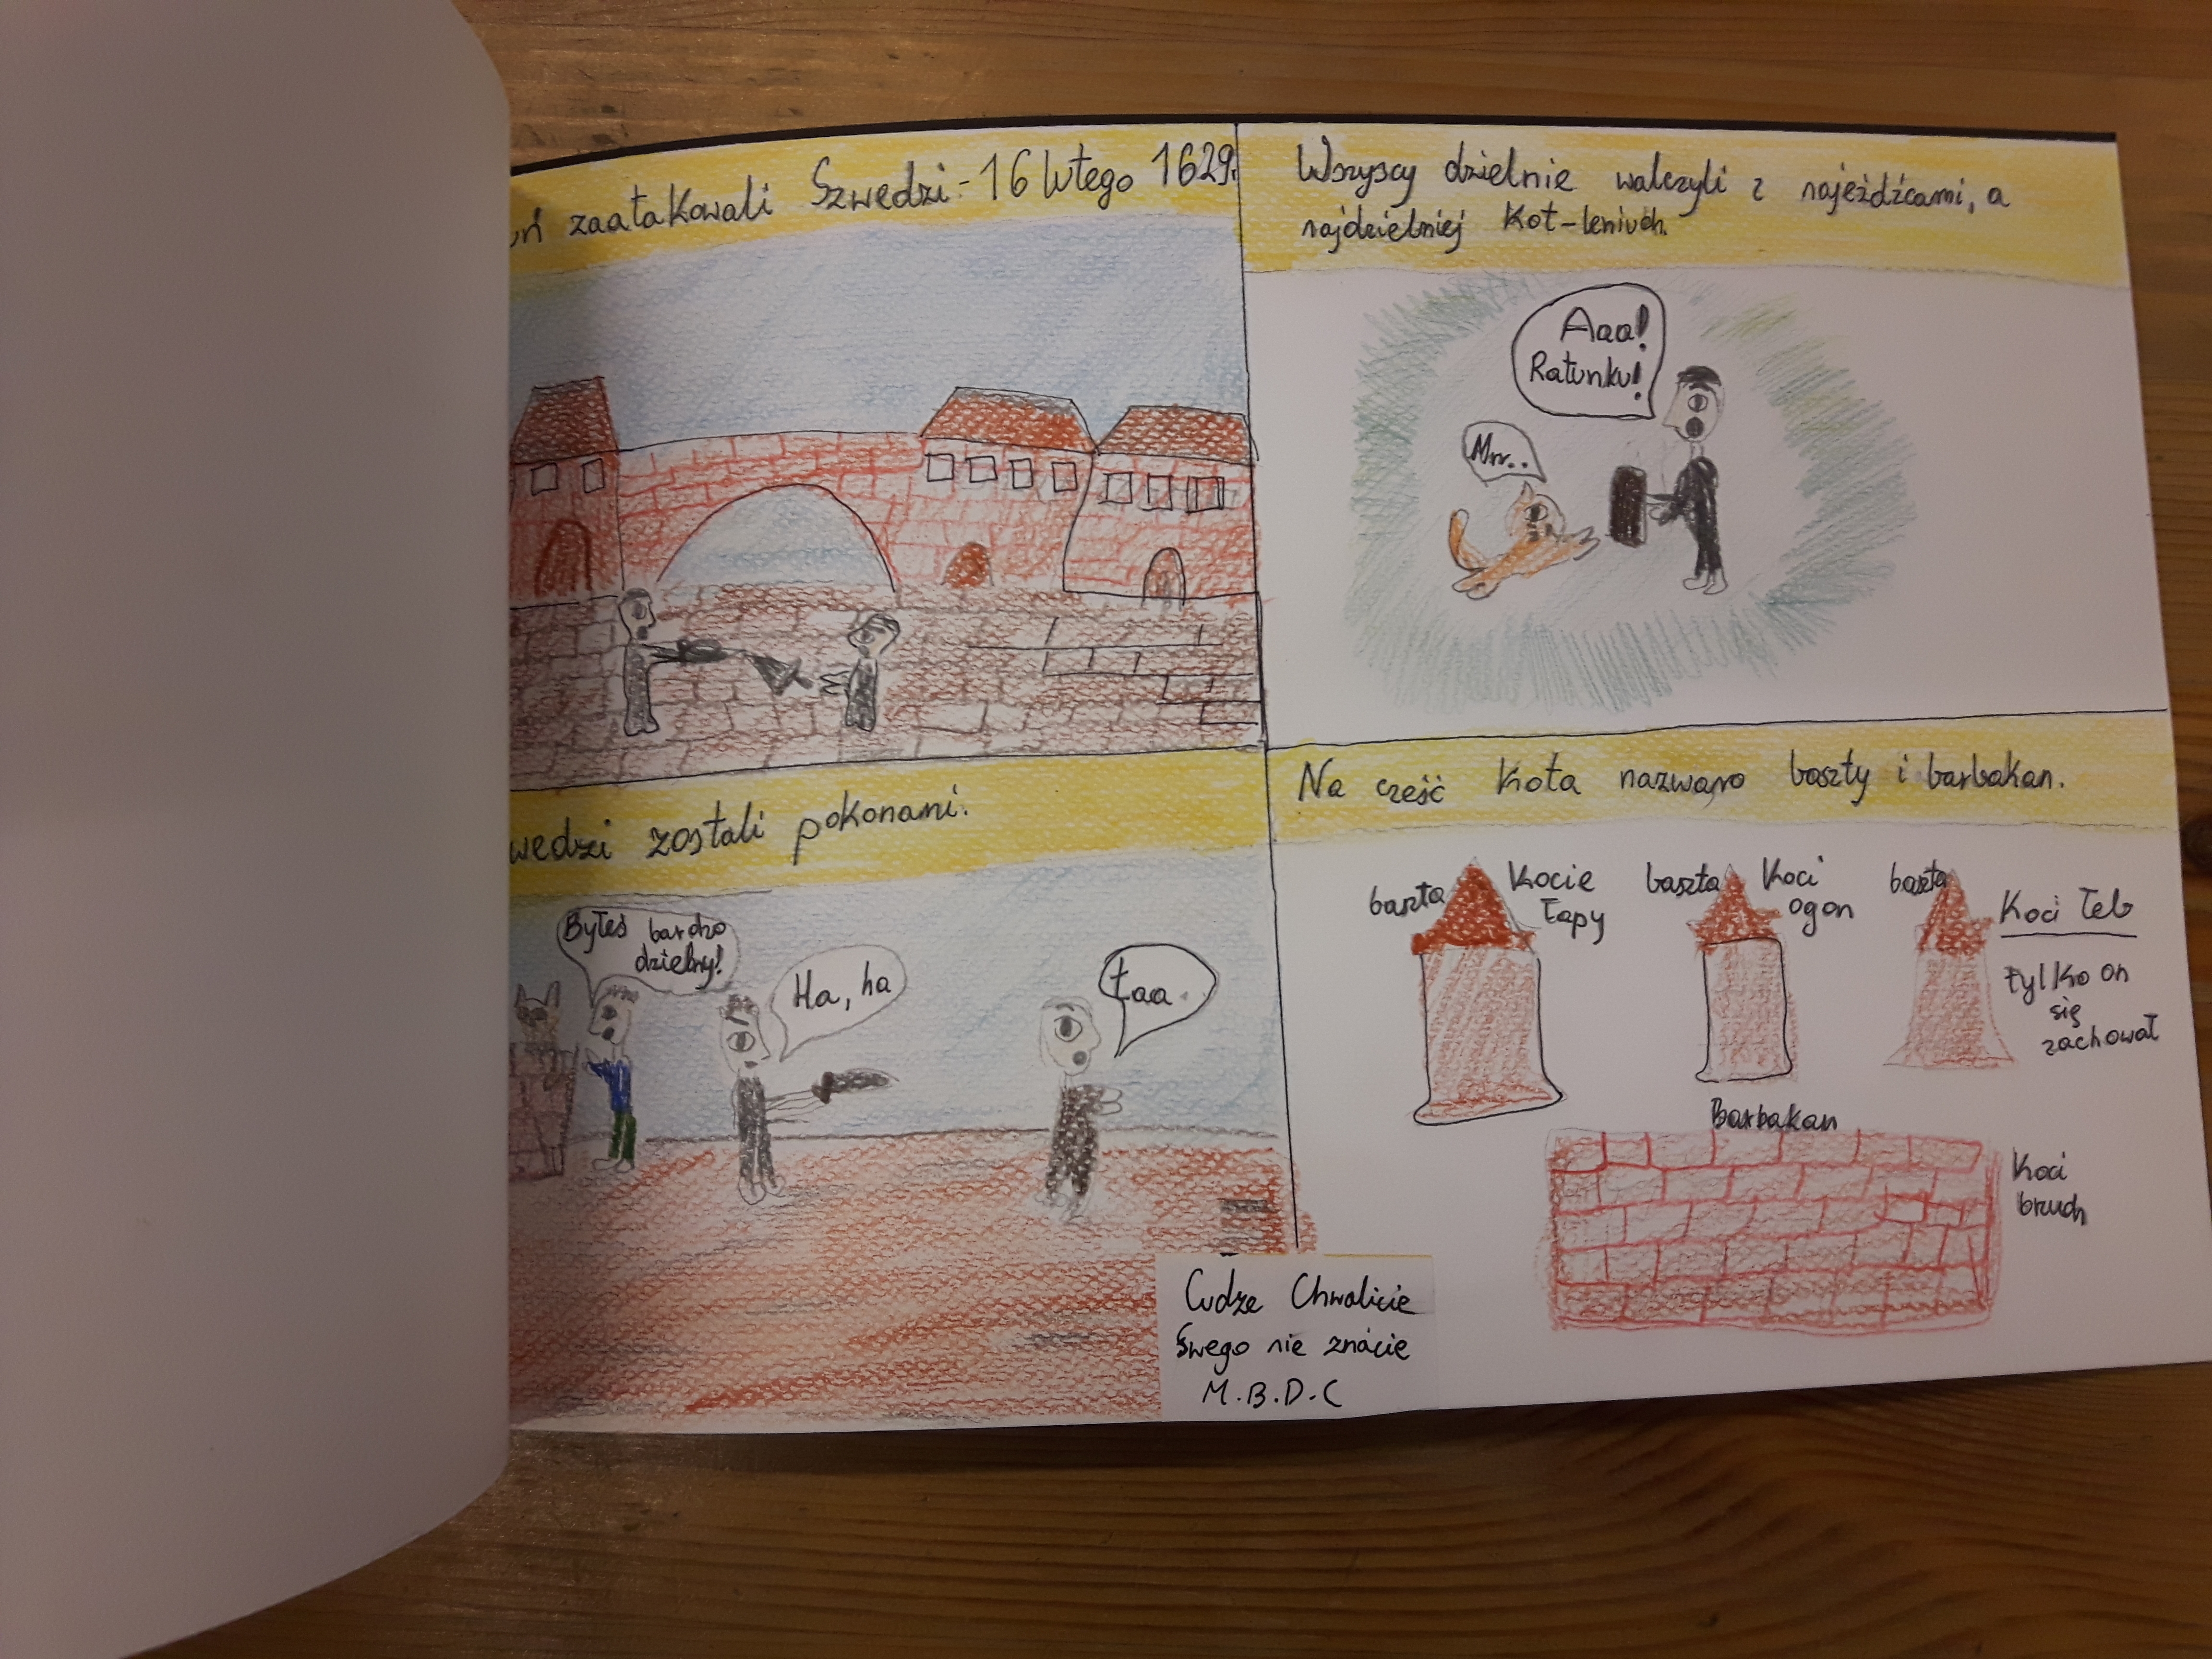 zaatakowali Szwedzi - 16 lutego 1629.
Wszyscy dzielnie walczyli z najeźdźcami, a
najdzielniej Kot-leniuch.
Aaa!
Ratunku!
Mrr..
wedzi zostali pokonani.
Byłeś bardzo
dzielny!
Ha, ha
Łaa.
Na cześć Kota nazwano baszty i barbakan.
baszta Kocie
Łapy
baszta Koci
ogon
baszta Koci Łeb
tylko on
się
zachował
Barbakan
Koci
bruch
Cudze Chwalicie
Swego nie znacie
M.B.D.C